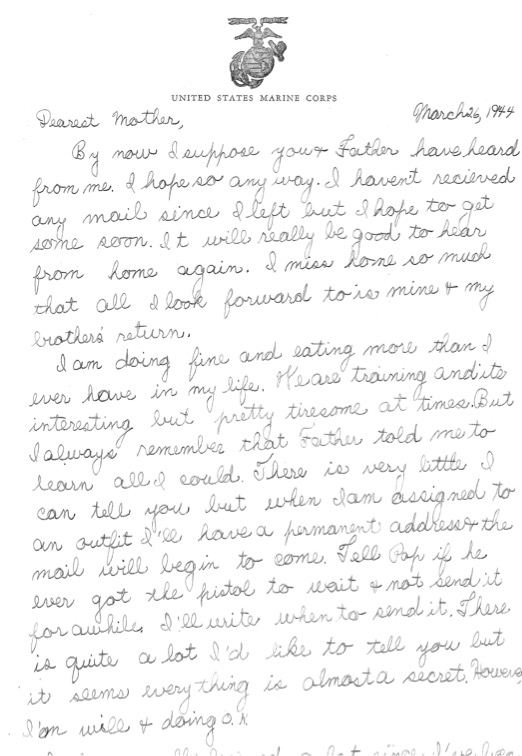 UNITED STATES MARINE CORPS
March 26, 1944
Dearest Mother,
By now I suppose you & Father have heard
from me. I hope so any way. I havent recieved
any mail since I left but I hope to get
some soon. It will really be good to hear
from home again. I miss home so much
that all I look forward to is mine & my
brothers' return.
I am doing fine and eating more than I
ever have in my life. We are training and its
interesting but pretty tiresome at times. But
I always remember that Father told me to
learn all I could. There is very little I
can tell you but when I am assigned to
an outfit I'll have a permanent address & the
mail will begin to come. Tell Pop if he
ever got the pistol to wait & not send it
for awhile. I'll write when to send it. There
is quite a lot I'd like to tell you but
it seems everything is almost a secret. However
I'm well & doing o.k
a lot since I've been